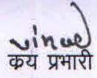 vinod
क्रय प्रभारी